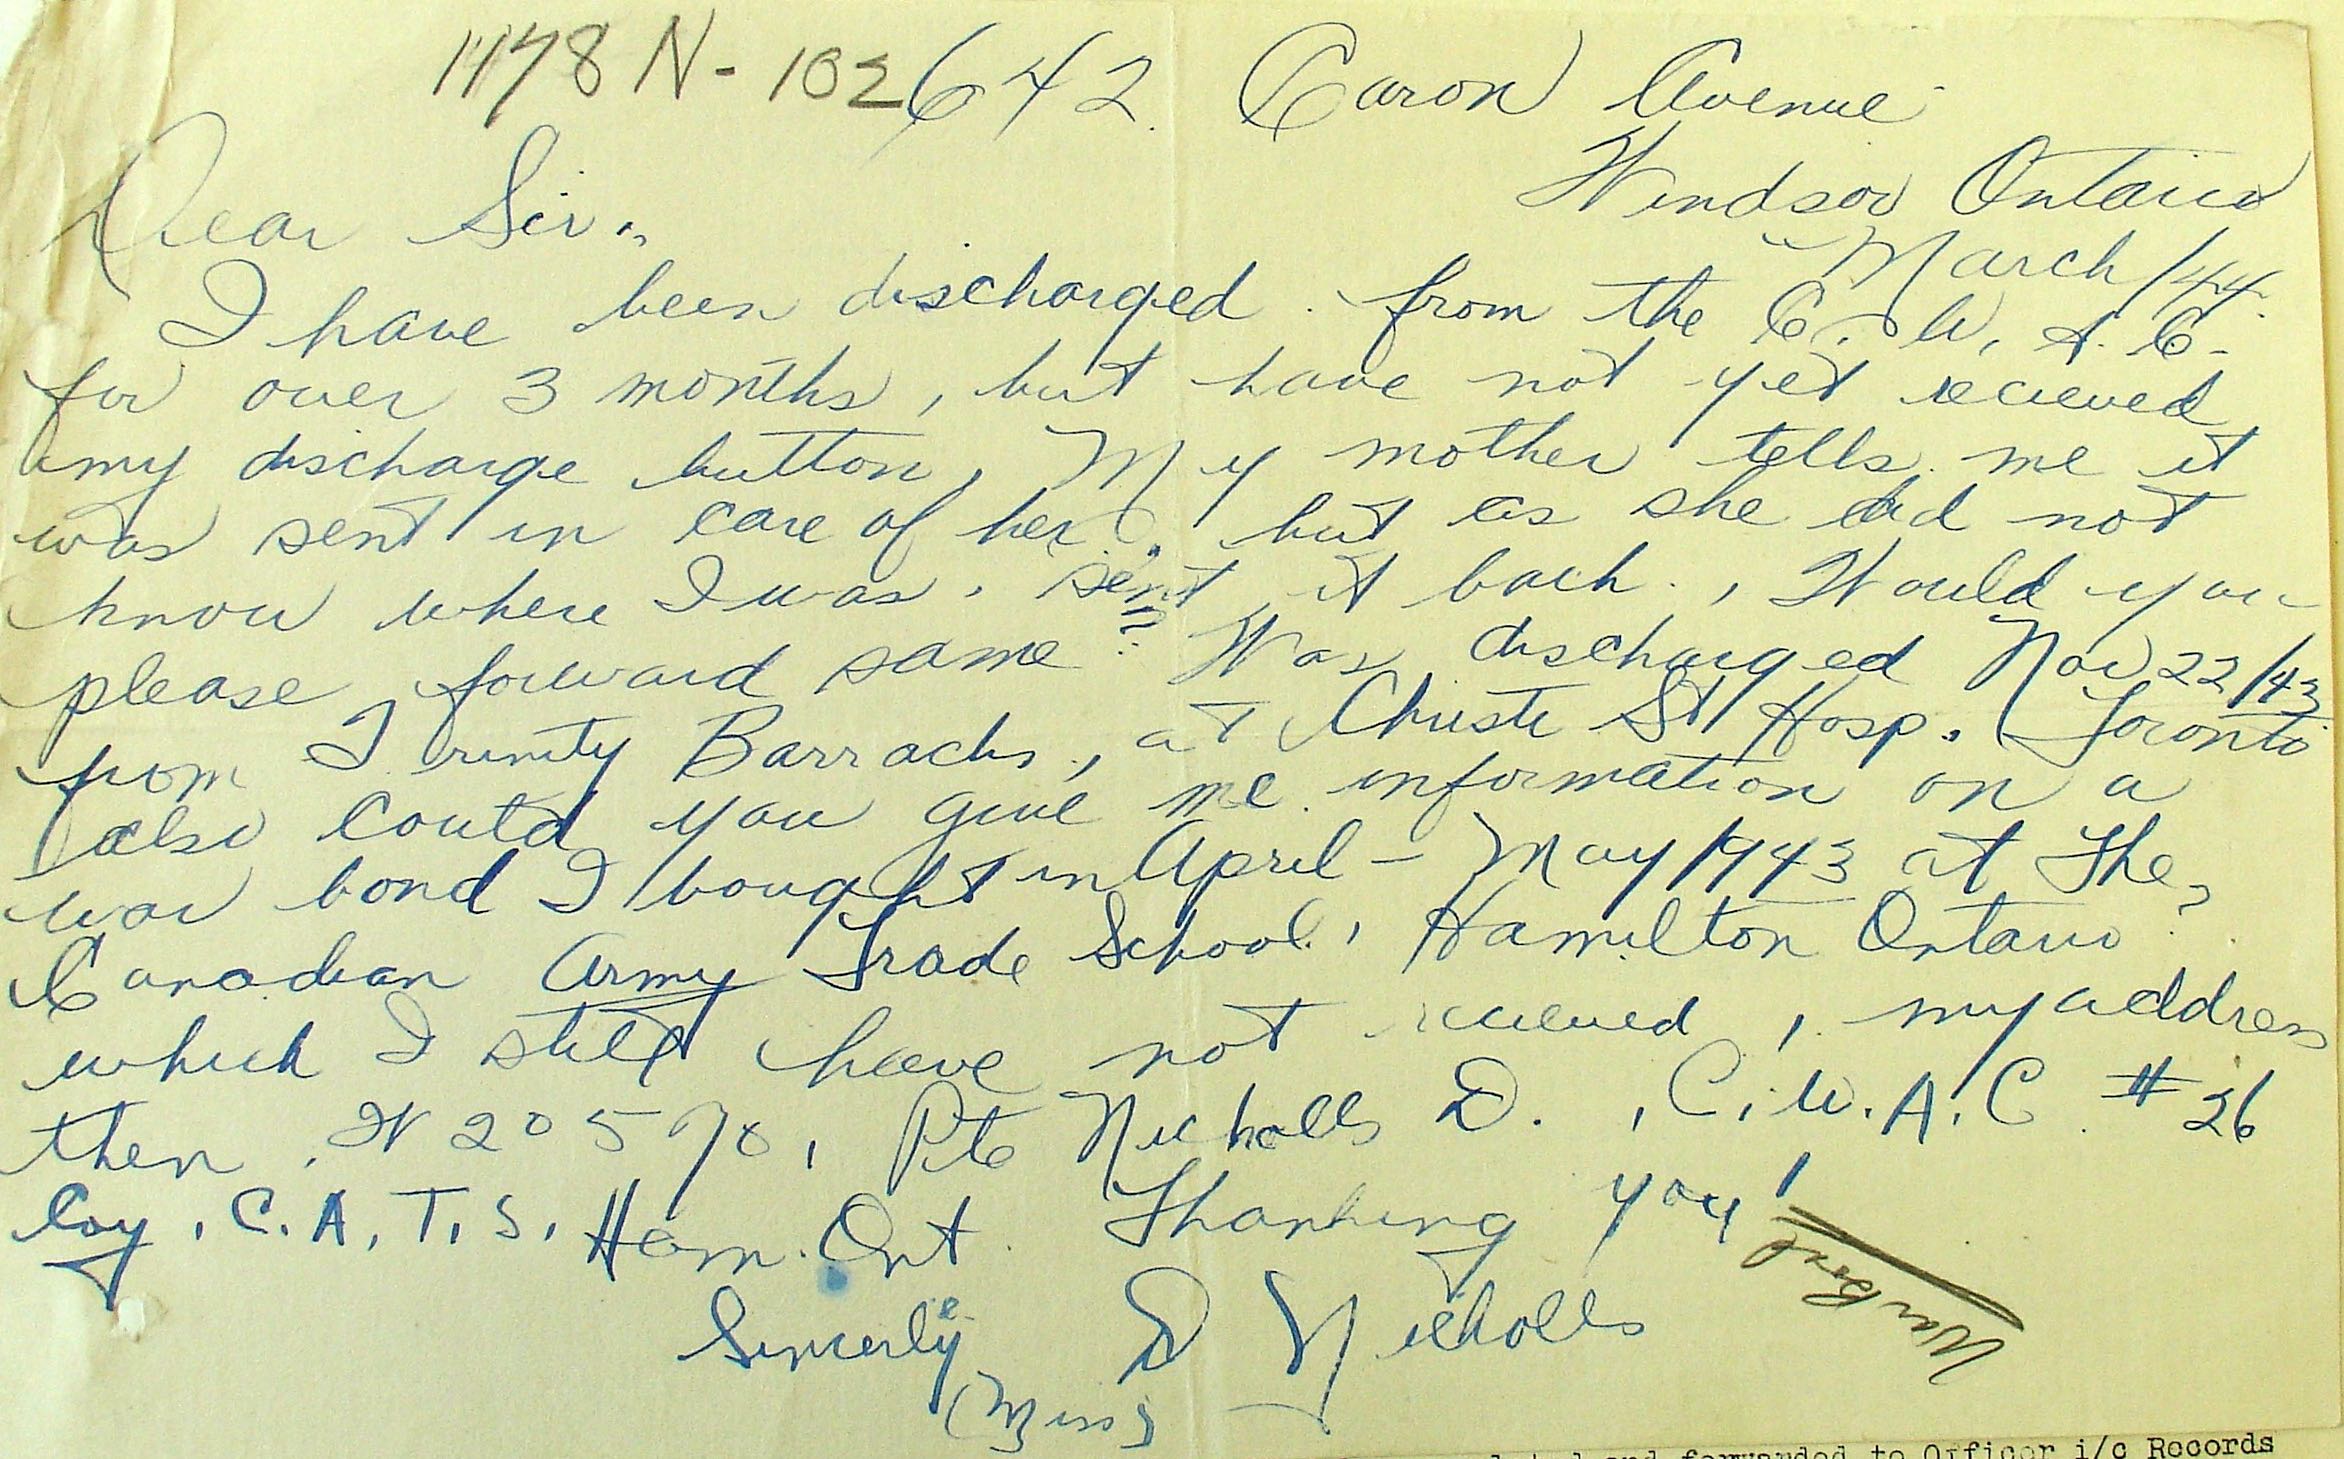 1178 N-102
642. Caron Avenue
Windsor Ontario
March /44.
Dear Sir.,
I have been discharged from the C. W. A. C.
for over 3 months, but have not yet recieved
my discharge button, My mother tells me it
was sent in care of her, but as she did not
know where I was, sent it back., Would you
please forward same? Was discharged Nov 22/43
from Trinity Barracks, at Christe St Hosp. Toronto
also could you give me information on a
war bond I bought in April - May 1943 at The,
Canadian Army Trade School, Hamilton Ontario?
which I still have not recieved, my address
then, W 20570, Pte Nicholls D., C.W.A.C. #26
Coy, C.A.T.S, Ham. Ont. Thanking you!
Sincerely D Nicholls
(Miss)
War Bond
and forwarded to Officer i/c Records